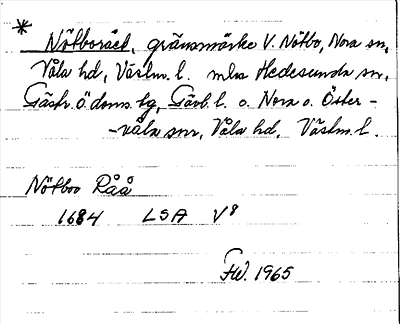 * Nötborået, gränsmärke V. Nötbo, Nora sn,
Våla hd, Västm. l. mln Hedesunda sn,
Gästr. ö. doms. tg, Gävb. l. o. Nora o. Öster-
-våla snr, Våla hd, Västm. l.
Nötboo Råå
1684 LSA V8
FW. 1965